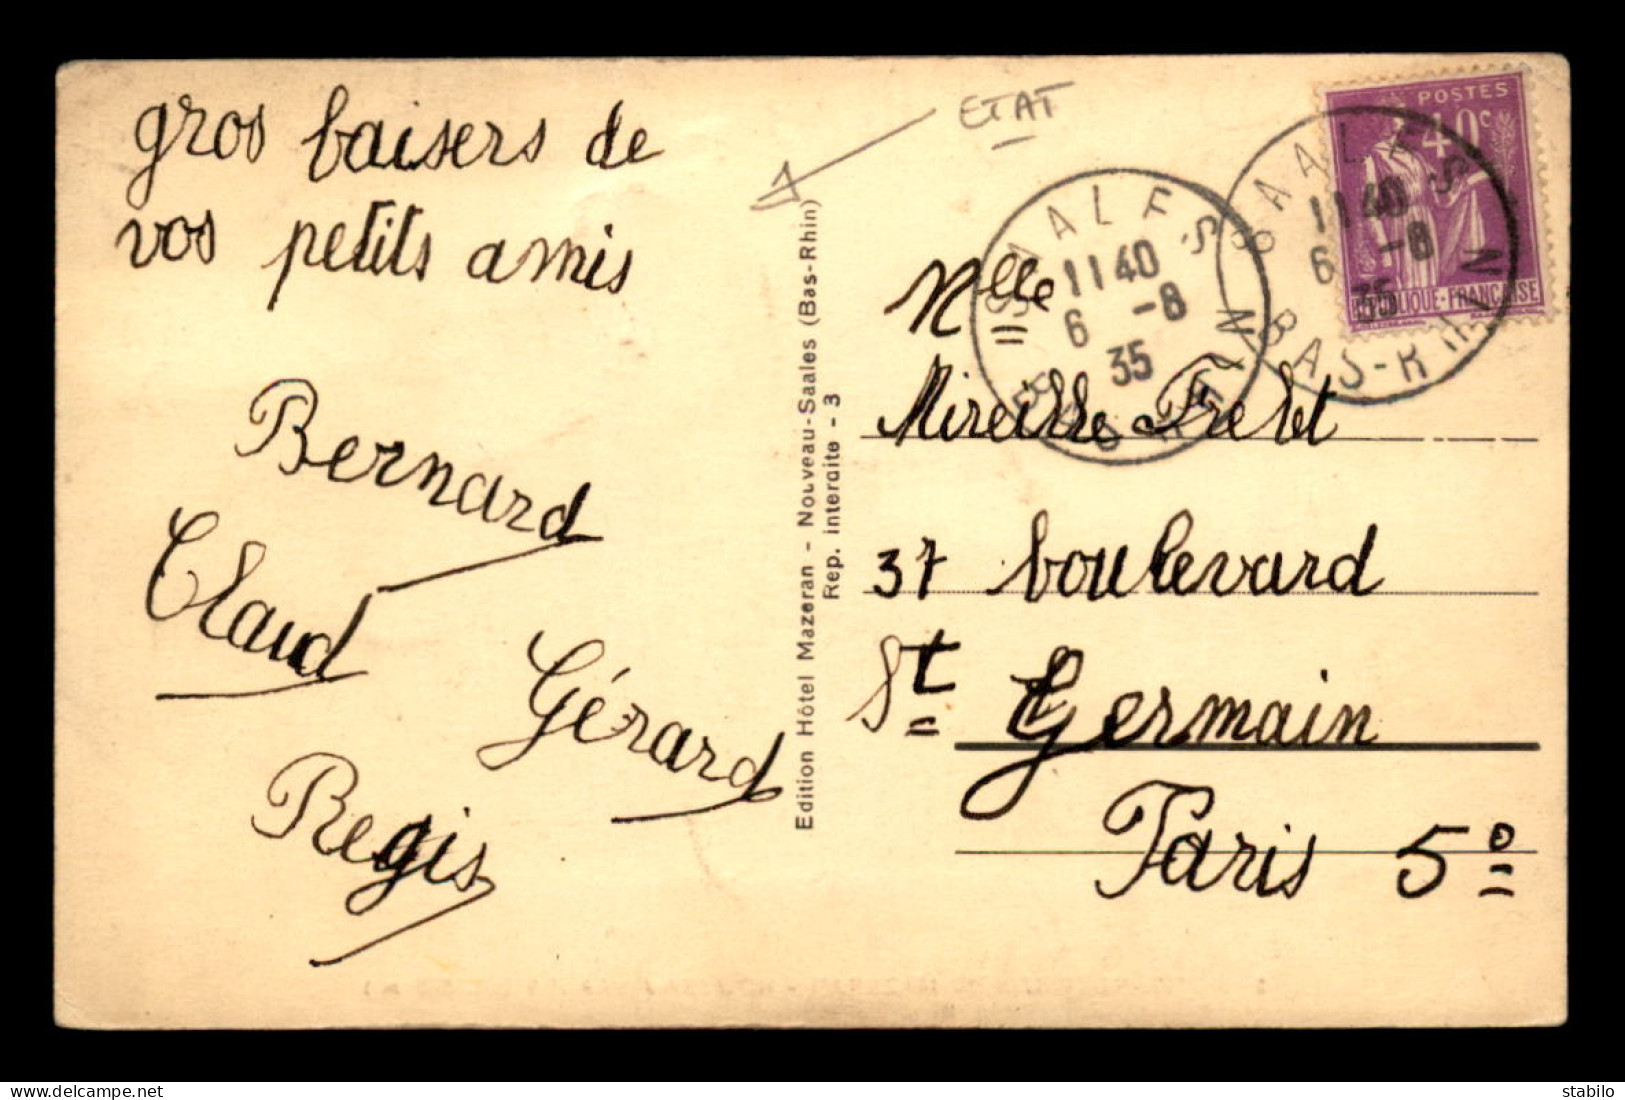 gros baisers de
vos petits amis
Bernard
Claud
Gérard
Regis
Edition Hôtel Mazeran - Nouveau-Saales (Bas-Rhin)
Rep. interdite - 3
ETAT
POSTES
40c
REPUBLIQUE-FRANÇAISE
SAALES
11 40
6 -8
35
BAS-RHIN
SAALES
11 40
6 -8
35
BAS-RHIN
Mlle
Mireille
37 boulevard
St Germain
Paris 5e
stabilo
www.delcampe.net